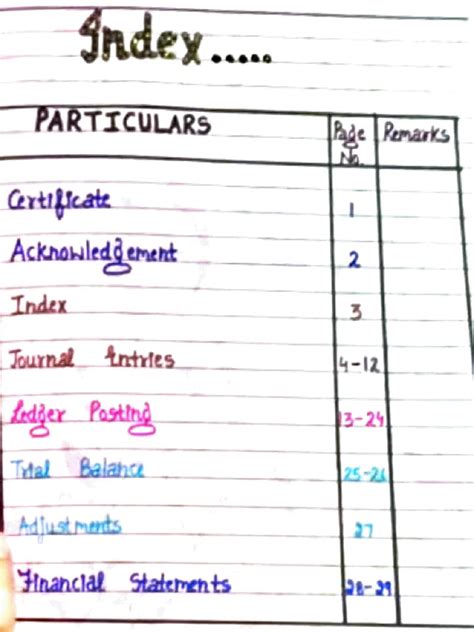 Index.....
PARTICULARS Page No. Remarks
Certificate 1
Acknowledgement 2
Index 3
Journal Entries 4-12
Ledger Posting 13-24
Trial Balance 25-26
Adjustments 27
Financial Statements 28-29